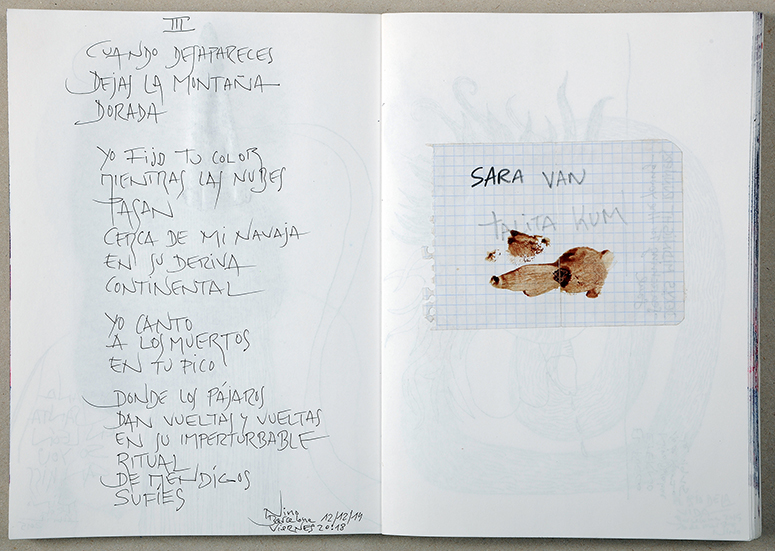 III
CUANDO DESAPARECES
DEJAS LA MONTAÑA
DORADA
YO FIJO TU COLOR
MIENTRAS LAS NUBES
PASAN
CERCA DE MI NAVAJA
EN SU DERIVA
CONTINENTAL
YO CANTO
A LOS MUERTOS
EN TU PICO
DONDE LOS PÁJAROS
DAN VUELTAS Y VUELTAS
EN SU IMPERTURBABLE
RITUAL
DE MENDIGOS
SUFÍES
Nino
Barcelona 12/12/14
VIERNES 20:18
SARA VAN
TALITA KUM